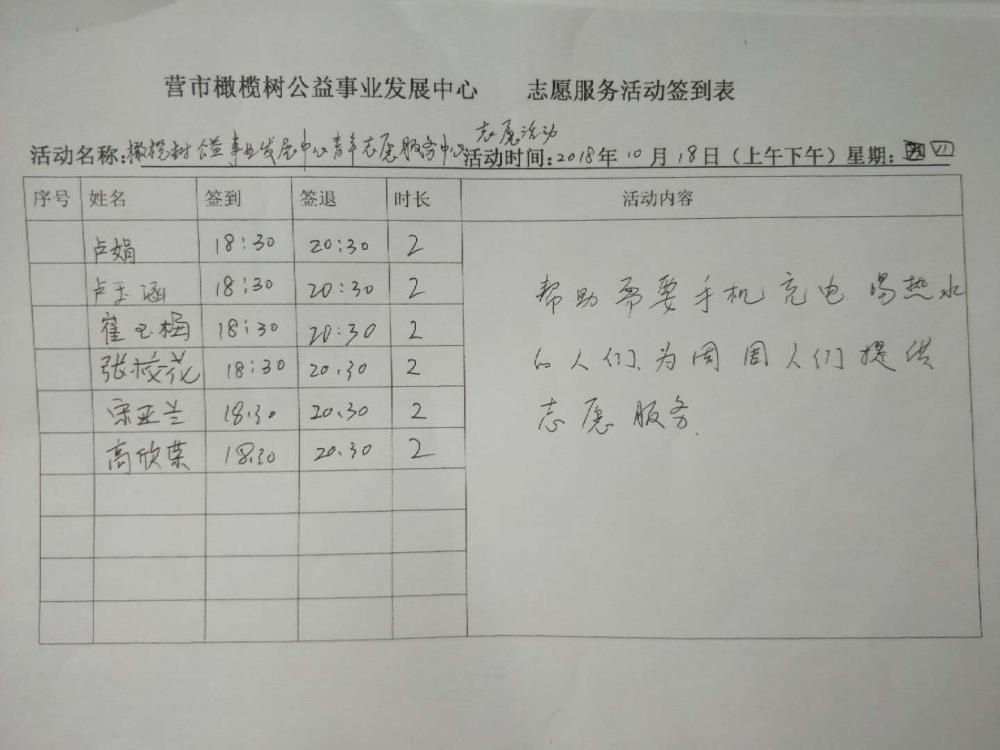 营市橄榄树公益事业发展中心 志愿服务活动签到表
志愿活动
活动名称:橄榄树公益事业发展中心青年志愿服务中心活动时间:2018年10月18日(上午下午)星期:四
序号 姓名 签到 签退 时长 活动内容
卢娟 18:30 20:30 2
卢玉涵 18:30 20:30 2
崔玉梅 18:30 20:30 2
张校花 18:30 20.30 2
宋亚兰 18.30 20.30 2
高欣荣 18.30 20.30 2
帮助需要手机充电.喝热水
的人们.为周围人们提供
志愿服务.